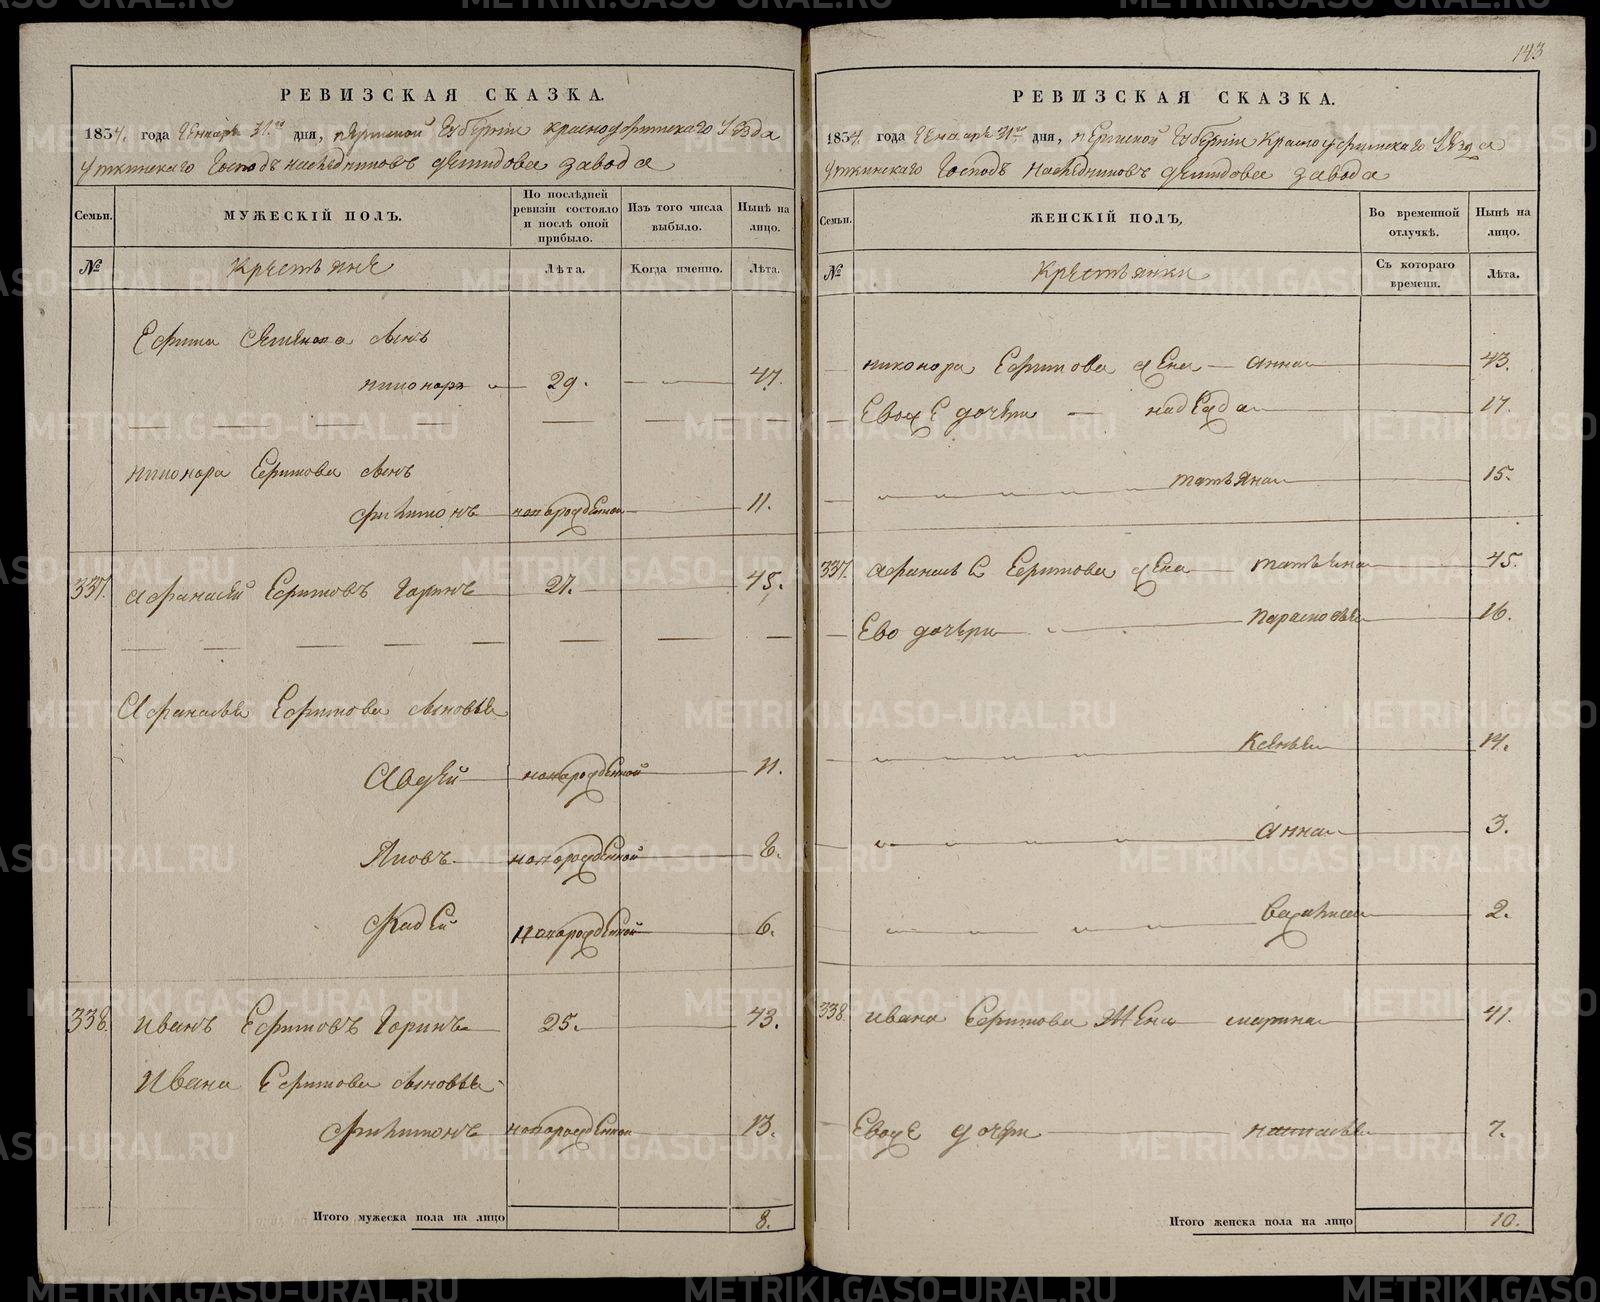 143
РЕВИЗСКАЯ СКАЗКА.
1834. года Генваря 31го дня, Пермской Губернiи Красноуфимскаго Уезда
Уткинскаго Господъ наследниковъ Демидова завода
Семьи. МУЖЕСКІЙ ПОЛЪ. По послѣдней ревизіи состояло и послѣ оной прибыло. Изъ того числа выбыло. Нынѣ на лицо.
№ Крестьяне Лѣта. Когда именно. Лѣта.
Ефима Семенова сынъ
никоноръ 29. 47.
никонора Ефимова сынъ
филимонъ новорожденной 11.
337. Афанасей Ефимовъ Горинъ 27. 45.
Афанасья Ефимова сыновья
Авдей новорожденной 11.
Яковъ новорожденной 8.
Фадей новорожденной 6.
338. Иванъ Ефимовъ Горинъ 25. 43.
Ивана Ефимова сыновья
филимонъ новорожденной 13.
Итого мужеска пола на лицо 8.
РЕВИЗСКАЯ СКАЗКА.
1834. года Генваря 31го дня, Пермской Губернiи Красноуфимскаго Уезда
Уткинскаго Господъ Наследниковъ Демидова завода
Семьи. ЖЕНСКІЙ ПОЛЪ, Во временной отлучкѣ. Нынѣ на лицо.
№ Крестьянки Съ котораго времени. Лѣта.
никонора Ефимова жена анна 43.
Евоже дочери надежда 17.
татьяна 15.
337. афанасьа Ефимова жена татьяна 45.
Ево дочери парасковья 16.
Ксенья 14.
анна 3.
2.
338. Ивана Ефимова Жена марина 41.
Евоже дочери настасья 7.
Итого женска пола на лицо 10.
METRIKI.GASO-URAL.RU